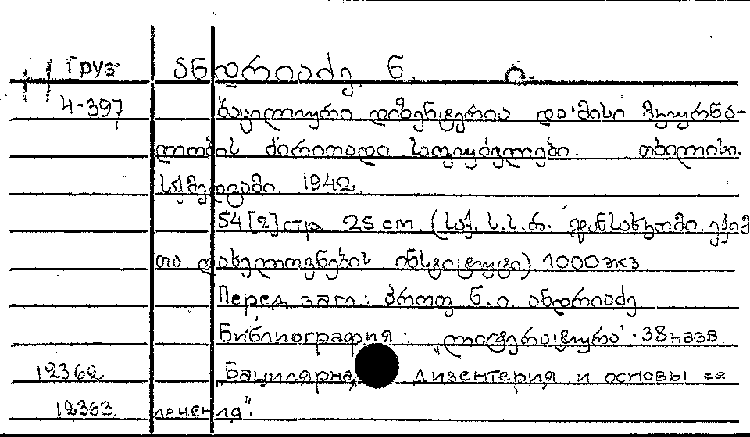 Груз ანდრიაძე. ნ. ი.
4-397 ბაცილიური დიზენტერია და მისი მკურნა-
ლობის ძირითადი საფუძვლები. თბილისი.
საქმედგამი 1942.
54 [2] стр. 25 cm. (საქ. ს.ს.რ. ჯანსახკომი. ექიმ
თა დახელოვნების ინსტიტუტი) 1000 экз
Перед загл: პროფ. ნ. ი. ანდრიაძე
Библиография: „ლიტერატურა". 38 назв
12362 „Бацилярная дизентерия и основы ее
12363 лечения".